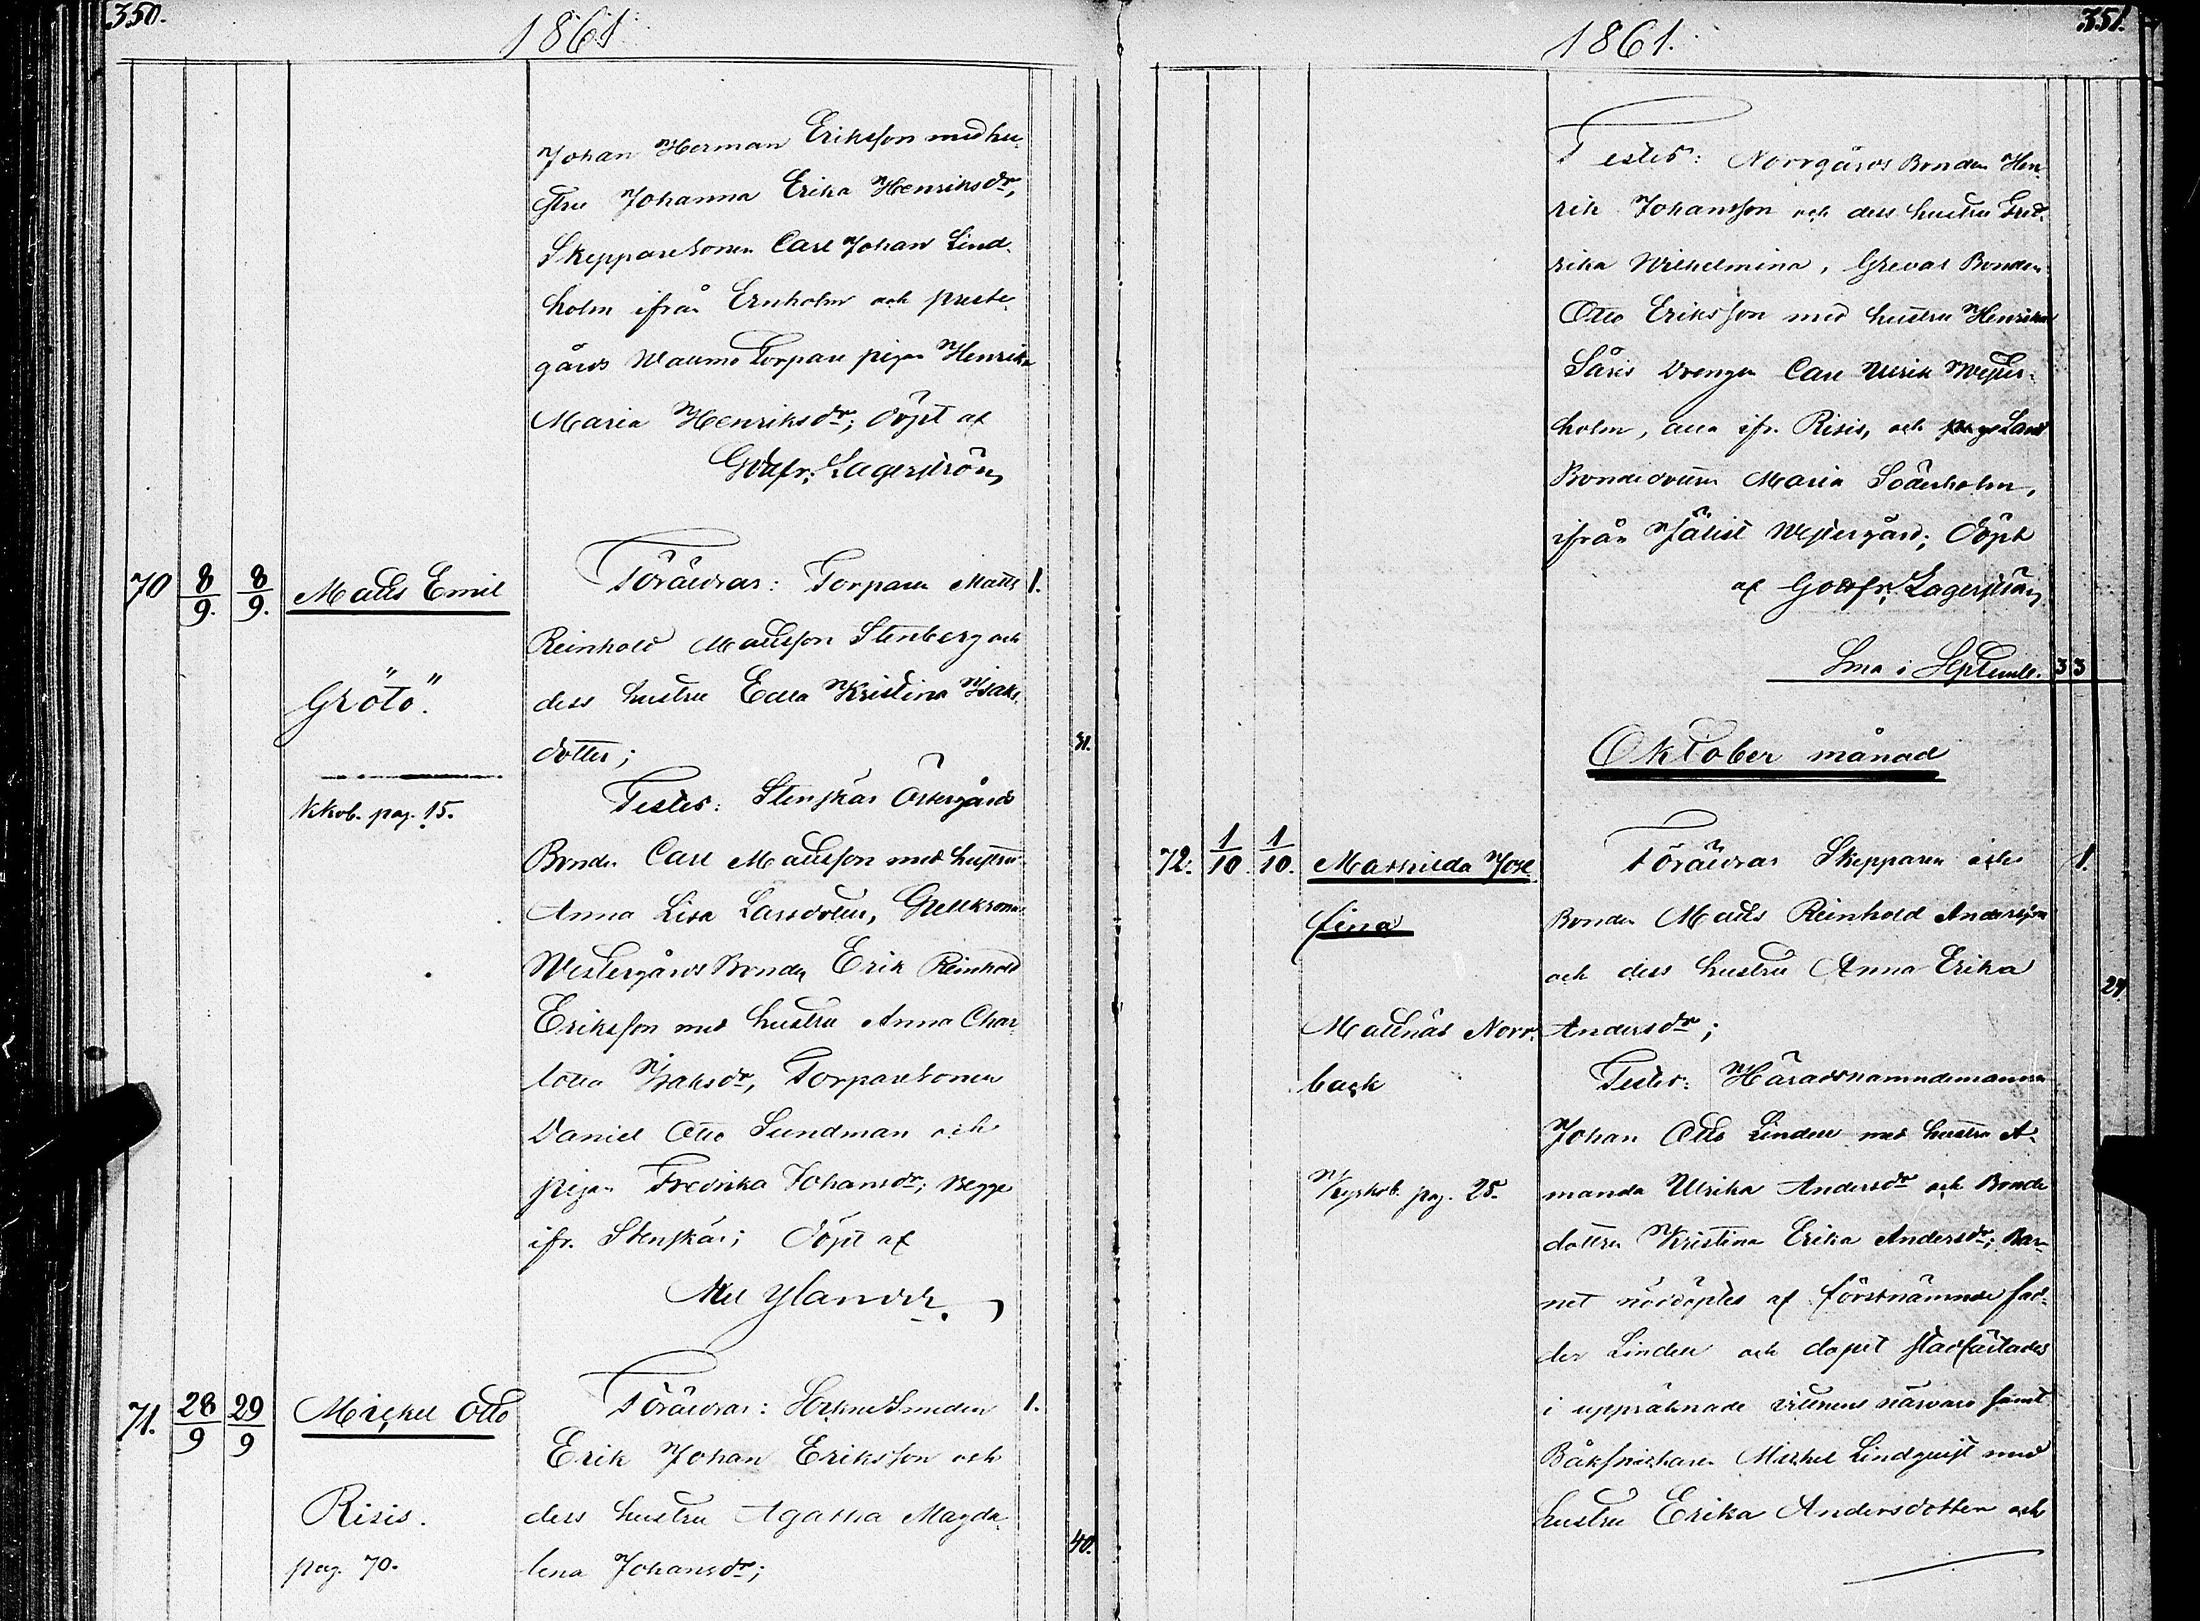 350.
1861
Johan Herman Eriksson med hu-
stru Johanna Erika Henriksdr,
Skepparesonen Carl Johan Lind-
holm ifrån Ernholm och preste-
gårds Torpare pigan Henrika
Maria Henriksdr; döpt af
Gottfr. Lagerström
70 8/9. 8/9. Matts Emil Föräldrar: Torparen Matts 1.
Reinhold Mattsson Stenberg och
"Grötö". dess hustru Edla Kristina Isaks-
dotter; 31.
Testes: Stenskär Östergårds
Kkob. pag. 15.
Bonden Carl Mattsson med hustru
Anna Lisa Larsdotter,
Westergårds Bonden Erik Reinhold
Eriksson med hustru Anna Char-
lotta Isaksdr, Torparesonen
Daniel Otto Sundman och
pigan Fredrika Johansdr; begge
ifr. Stenskär; döpt af
Ylander.
71. 28/9 29/9 Mickel Otto Föräldrar: Sockne Smeden 1.
Erik Johan Eriksson och
Risis. dess hustru Agatha Magda-
pag. 70. lena Johansdr; 40.
351.
1861.
Testes: Norrgårds Bonden Hen-
rik Johansson och dess hustru Fred-
rika Wilhelmina, Grevas Bonden
Otto Eriksson med hustru Henrika
Såris Drengen Carl Ulrik Wester-
holm, alla ifr. Risis, och
Bondedottern Maria Söderholm,
ifrån Westergård; döpt
af Gottfr. Lagerström
Sma i Septemb. 33
Oktober månad
72. 1/10. 1/10. Mathilda Jose- Föräldrar Skepparen och 1.
fina Bonden Matts Reinhold Andersson
och dess hustru Anna Erika 27
Mattnäs Norr- Andersdr;
back Testes: Häradsnämndemannen
Johan Otto Lindell med hustru A-
Kyrkob. pag. 25. manda Ulrika Andersdr och Bonde
dottren Kristina Erika Andersdr; Bar-
net nöddöptes af förstnämnde fad-
der Lindell och dopet stadfästades
i uppräknade vittnens närvaro samt
Båkfiskaren Mickel Lindqvist med
hustru Erika Andersdotter och